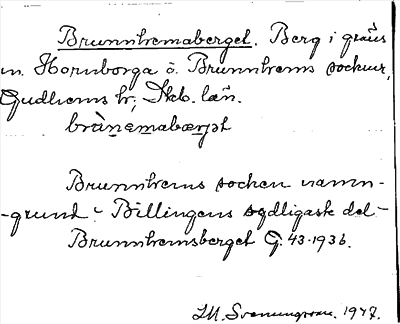 Brunnhemaberget. Berg i gräns
m. Hornborga o. Brunnhems socknar,
Gudhems hr, Skb. län.
brùnemabærjət
Brunnhems socken namn-
-grund. Billingens sydligaste del -
Brunnhemsberget G. 43. 1936.
1947.